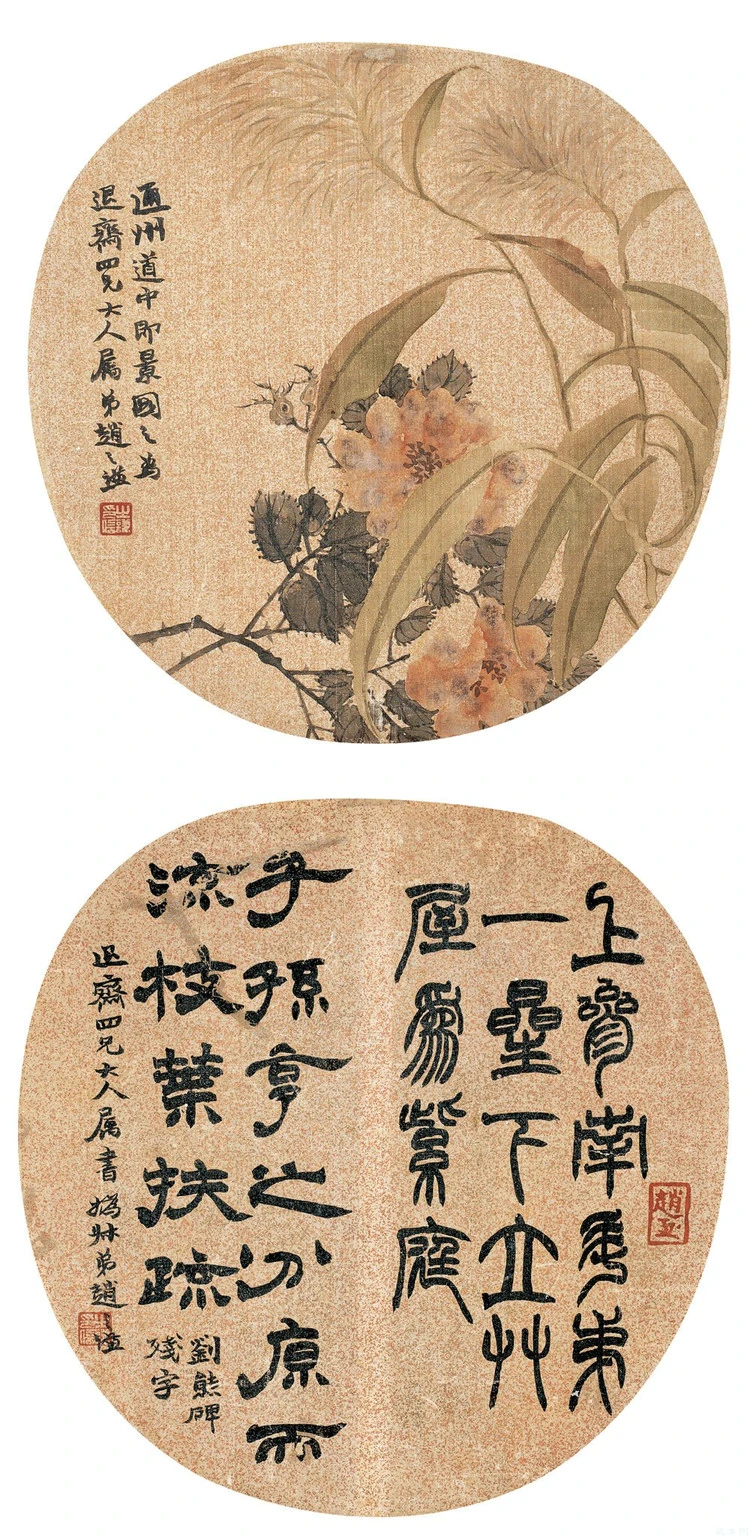 通州道中即景圖之為
退齋四兄大人屬弟趙之謙
上參南斗弟
一星下立艸
屋為紫庭
子孫亨之分原而
流枝葉扶疏
劉熊碑
殘字
退齋四兄大人屬書撝叔弟趙之謙